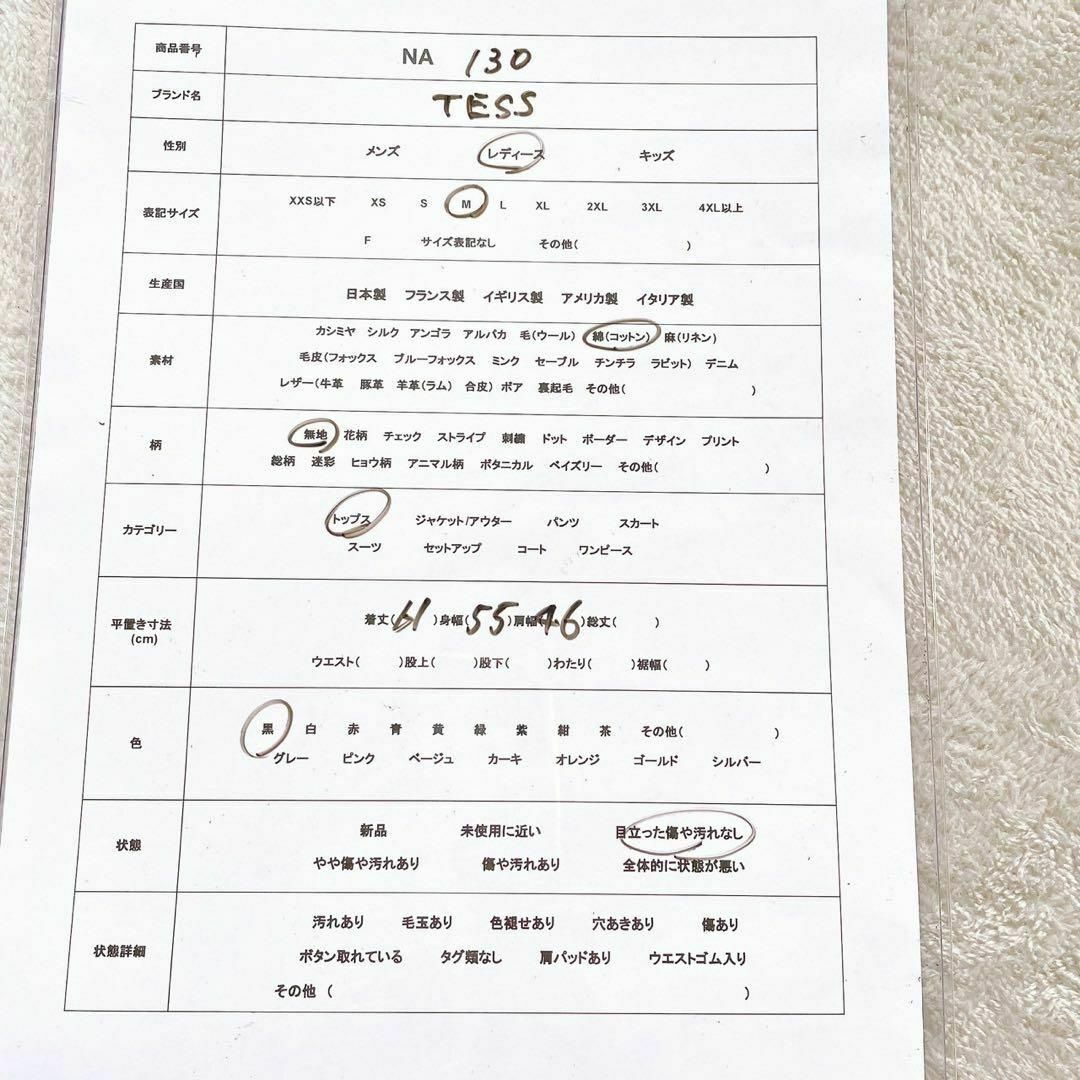 商品番号 NA 130
ブランド名 TESS
性別 メンズ レディース キッズ
表記サイズ XXS以下 XS S M L XL 2XL 3XL 4XL以上
F サイズ表記なし その他( )
生産国 日本製 フランス製 イギリス製 アメリカ製 イタリア製
素材 カシミヤ シルク アンゴラ アルパカ 毛(ウール) 綿(コットン) 麻(リネン)
毛皮(フォックス ブルーフォックス ミンク セーブル チンチラ ラビット) デニム
レザー(牛革 豚革 羊革(ラム) 合皮) ボア 裏起毛 その他( )
柄 無地 花柄 チェック ストライプ 刺繍 ドット ボーダー デザイン プリント
総柄 迷彩 ヒョウ柄 アニマル柄 ボタニカル ペイズリー その他( )
カテゴリー トップス ジャケット/アウター パンツ スカート
スーツ セットアップ コート ワンピース
平置き寸法 (cm) 着丈( 61 )身幅( 55 )肩幅( 46 )総丈( )
ウエスト( )股上( )股下( )わたり( )裾幅( )
色 黒 白 赤 青 黄 緑 紫 紺 茶 その他( )
グレー ピンク ベージュ カーキ オレンジ ゴールド シルバー
状態 新品 未使用に近い 目立った傷や汚れなし
やや傷や汚れあり 傷や汚れあり 全体的に状態が悪い
状態詳細 汚れあり 毛玉あり 色褪せあり 穴あきあり 傷あり
ボタン取れている タグ類なし 肩パッドあり ウエストゴム入り
その他 ( )